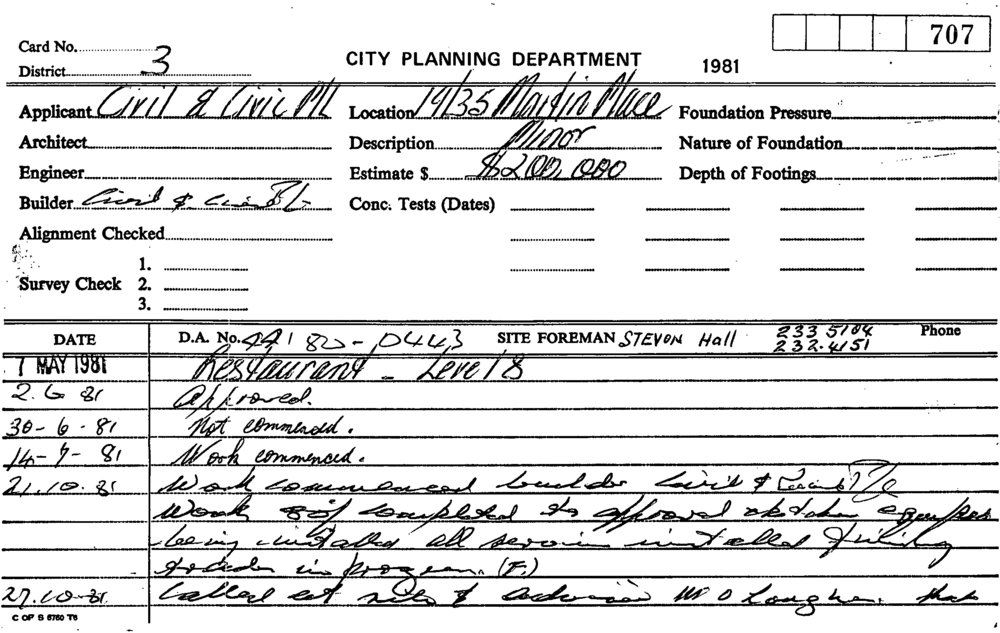 707
Card No.
CITY PLANNING DEPARTMENT 1981
District 3
Applicant Civil & Civic P/L Location 19/35 Martin Place Foundation Pressure
Architect Description Minor Nature of Foundation
Engineer Estimate $ $200,000 Depth of Footings
Builder Civil & Civic P/L Conc. Tests (Dates)
Alignment Checked
1.
Survey Check 2.
3.
DATE D.A. No. 44 80-0443 SITE FOREMAN STEVON Hall 233 5104 Phone
232.4151
7 MAY 1981 Restaurant - Level 8
2.6 81 Approved.
30-6-81 Not commenced.
14-7-81 Work commenced.
21.10.81 Work commenced builder Civil & Civic P/L
Work 80% completed to approval kitchen
being installed all services installed
trades in progress. (F.)
27.10.81 Called at site & advised Mr that
C OF S 6760 T6